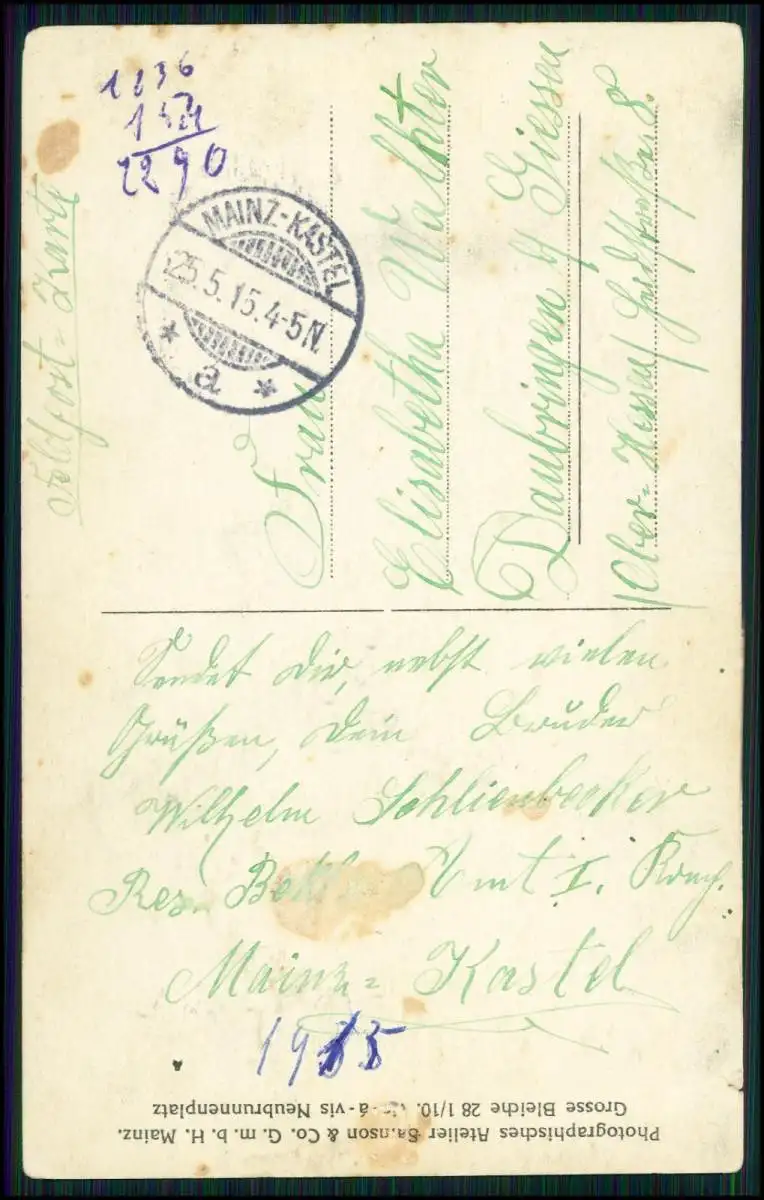 Feldpost=Karte
1136
1154
2290
MAINZ-KASTEL
25.5.15.4-5N.
* a *
Frau
Elisabetha Walhter
Daubringen b/ Giessen
/Ober=Hessen/ straße 8.
Sendet Dir, nebst vielen
Grüßen, Dein Bruder
Wilhelm Schlienbecker
Res. Amt I.
Mainz=Kastel
1915
Photographisches Atelier Samson & Co. G. m. b. H. Mainz.
Grosse Bleiche 28 1/10. vis-á-vis Neubrunnenplatz